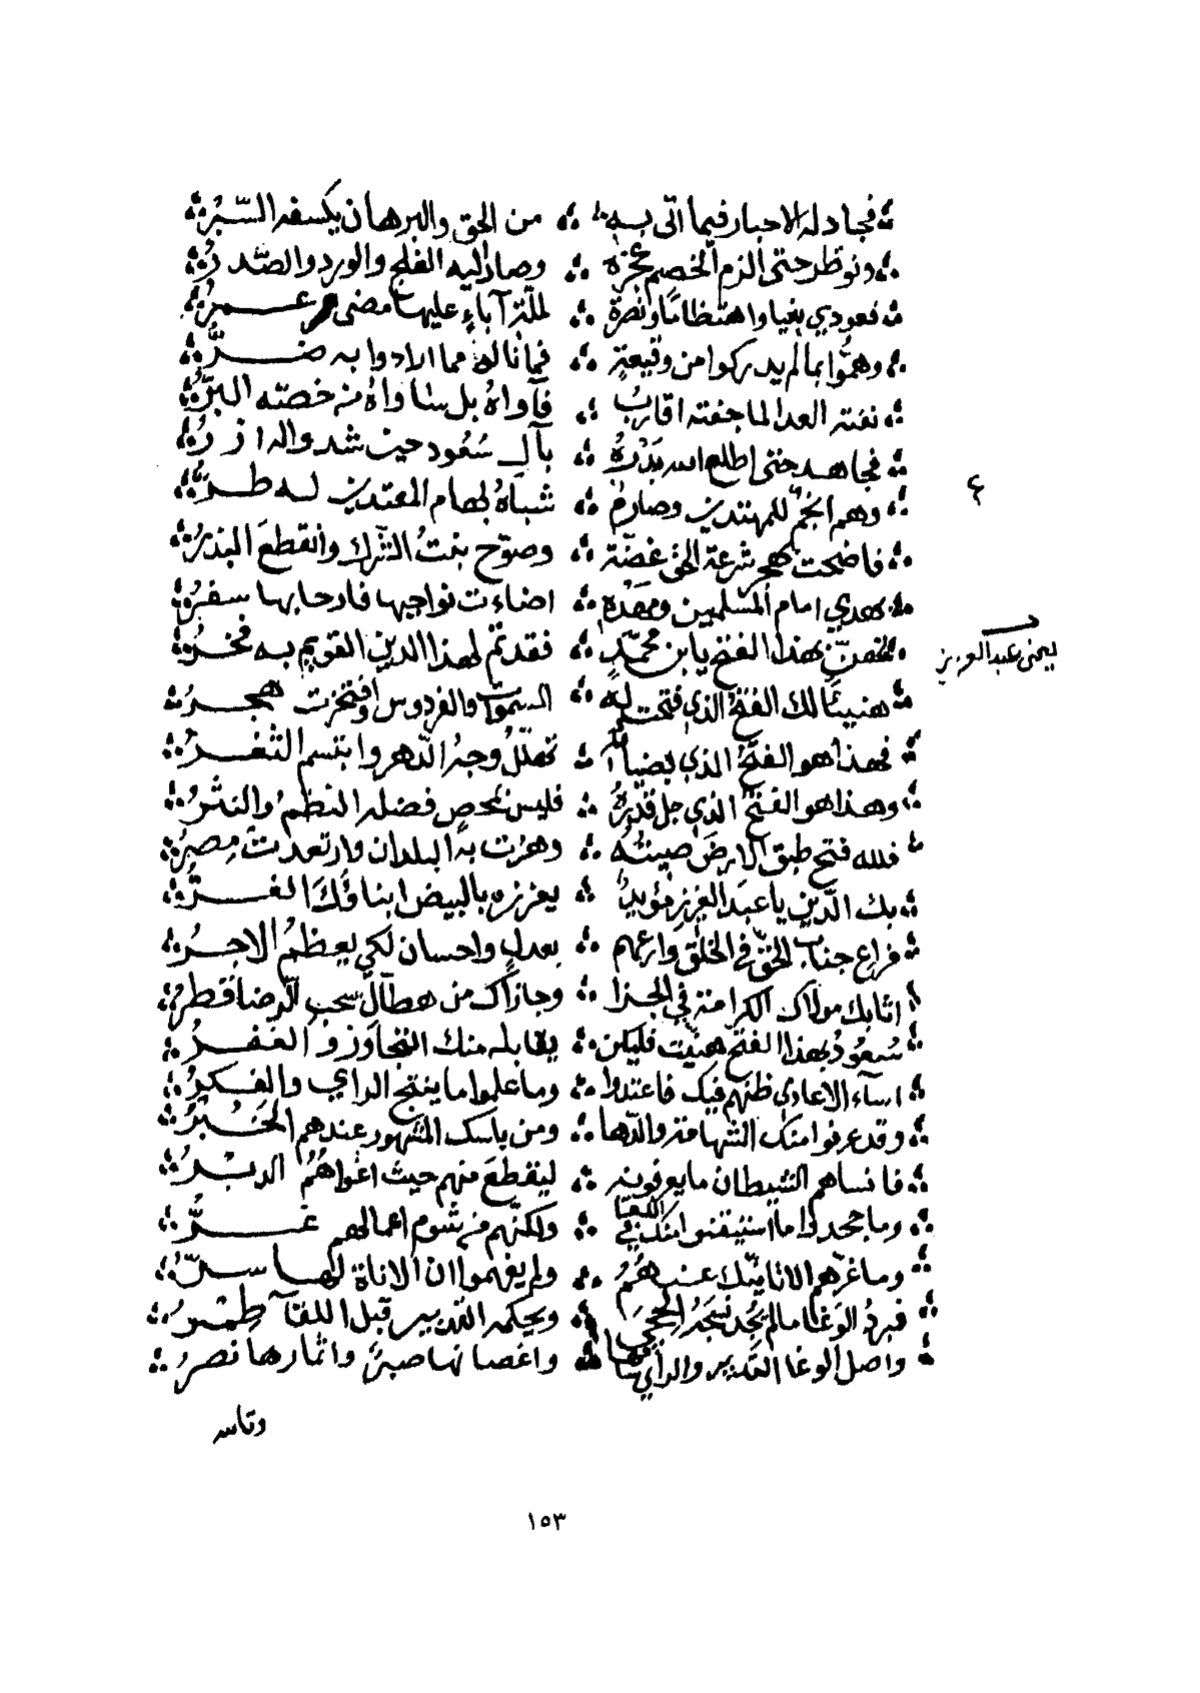 فجادله الاحبار فيما اتى به ؞ من الحق والبرهان يكسفه السّبرُ
ونوظر حتى الزم الخصم عجزه ؞ وصار اليه الفلج والورد والصّدرُ
فعودي بغيا واهتظاما ونصرة ؞ لملّة آباءٍ عليها مضى عمرُ
وهمُّوا بما لم يدركوا من وقيعةٍ ؞ فما نالهُ مما ارادوا به ضرُّ
نفته العدا لما جفته اقاربُ ؞ فآواهُ بل ساواهُ من خصّه البِرُّ
فجاهد حتى اطلع الله بَدْرَهُ ؞ بآلِ سُعُود حين شد واله ازرُ
وهم انجمٌ للمهتدين وصارمٌ ؞ شباهُ لهام المعتدين له طرُّ
فاضحت بهم شرعة الحق غضّة ؞ وصوّح نبتُ الشّرك وانقطعَ البذرُ
بهدي امام المسلمين ومهده ؞ اضاءت نواحيها فارحابها سفرُ
تهنّ بهذا الفتح يا بن محمّدٍ ؞ فقد تمّ لهذا الدين القويم به فخرُ
هنيئًا لك الفتحُ الذي فتحت له ؞ السموات والفردوس وافتخرت هجرُ
فهذا هو الفتحُ الذي بضيائه ؞ تهلّلُ وجهُ الدّهر وابتسم الثغرُ
وهذا هو الفتح الذي جل قدْرُهُ ؞ فليس بمحصٍ فضله النظمُ والنثرُ
فلله فتح طبق الارضَ صيتُهُ ؞ وهزت به البلدان وارتعدت مِصرُ
بك الدّين يا عبدَ العزيز مؤيدٌ ؞ يعززه بالبيض ابناؤكَ الغرُّ
فراعِ جنابَ الحقّ في الخلق وارعهم ؞ بعدلٍ واحسان لكي يعظمُ الاجرُ
اثابك مولاك الكرامة في الجزا ؞ وجازاك من هطّال سحب الرّضا قطرُ
سُعُودُ بهذا الفتح هنّيت فليكن ؞ يقابله منك التجاوز والغفرُ
اسآء الاعادي ظنهم فيك فاعتدوا ؞ وما علموا ما ينتج الراي والفكرُ
وقد عرفوا منك الشهامة والدّها ؞ ومن باسك المشهور عندهم الخَبْرُ
فانساهم الشيطان ما يعرفونه ؞ ليقطعَ منهم حيث اغواهُمُ الدبْرُ
وما جحدوا ما استيقنوا منك في اللقا ؞ ولكنّهم من شوم اعمالهم غرُّ
وما غرّهم الا تانيّك عنهُمُ ؞ ولم يفهموا ان الاناة لها سرُّ
فبردُ الوغا ما لم يُجِدْ نسجَهُ الحِجى ؞ ويحكمه التدبير قبل اللقآ طِمْرُ
واصل الوغا التدبير والراي ساقها ؞ واغصانها صبرٌ واثمارها نصرُ
وتاسه
٤
يعنى عبد العزيز
١٥٣